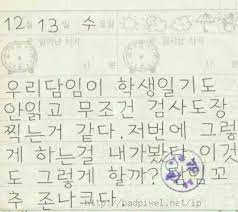 12월 13일 수요일
우리담임이 학생일기도
안읽고 무조건 검사도장
찍는거 같다. 저번에 그렇
게 하는걸 내가봤다 이것
도 그렇게 할까? 담임꼬
추 존나크다
http://badpixel.net/ip